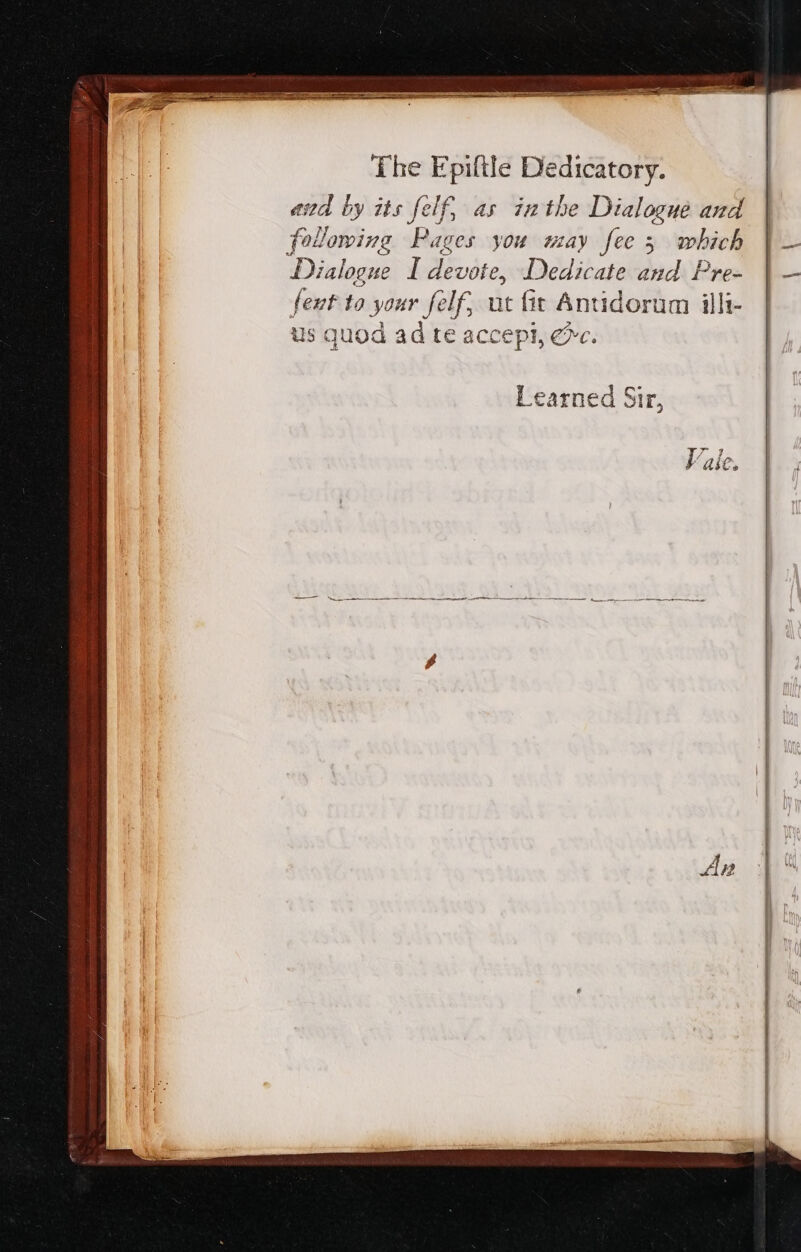 The Epiſtle Dedicatory.
and by its ſelf, as in the Dialogue and
following Pages you may ſee; which
Dialogue I devote, Dedicate and Pre-
ſent to your ſelf, ut ſit Antidorum illi-
us quod ad te accepi, &c.
Learned Sir,
Vale.
An